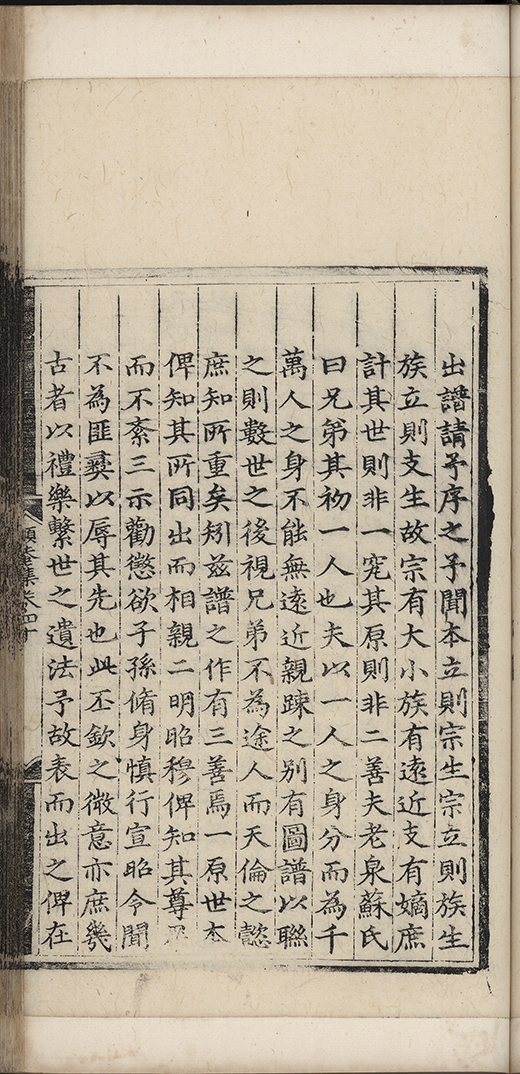 出譜請予序之予聞本立則宗生宗立則族生
族立則支生故宗有大小族有遠近支有嫡庶
計其世則非一究其原則非二善夫老泉蘇氏
曰兄弟其初一人也夫以一人之身分而為千
萬人之身不能無遠近親踈之別有圖譜以聯
之則數世之後視兄弟不為途人而天倫之懿
庶知所重矣矧兹譜之作有三善焉一原世本
俾知其所同出而相親二明昭穆俾知其尊
而不紊三示勸懲欲子孫脩身慎行宣昭令聞
不為匪彛以辱其先也此丕欽之微意亦庶幾
古者以禮樂繫世之遺法予故表而出之俾在
頤菴集卷四